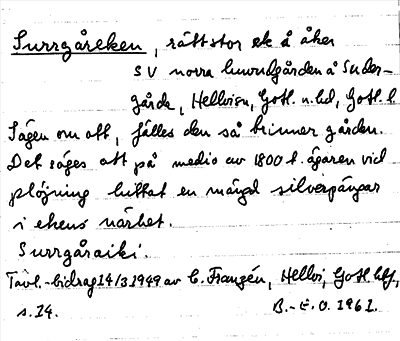 Surrgåreken, rätt stor ek å åker
SV norra huvudgården å Suder-
gårda, Hellvi sn, Gotl. n. hd, Gotl. l.
Sägen om att, fälles den så brinner gården.
Det säges att på medio av 1800 t. ägaren vid
plöjning hittat en mängd silverpängar
i ekens närhet.
Surrgåraiki.
Tävl.-bidrag 14/3 1949 av C. Franzén, Hellvi, Gotl.
s. 14. B.-E. O. 1961.